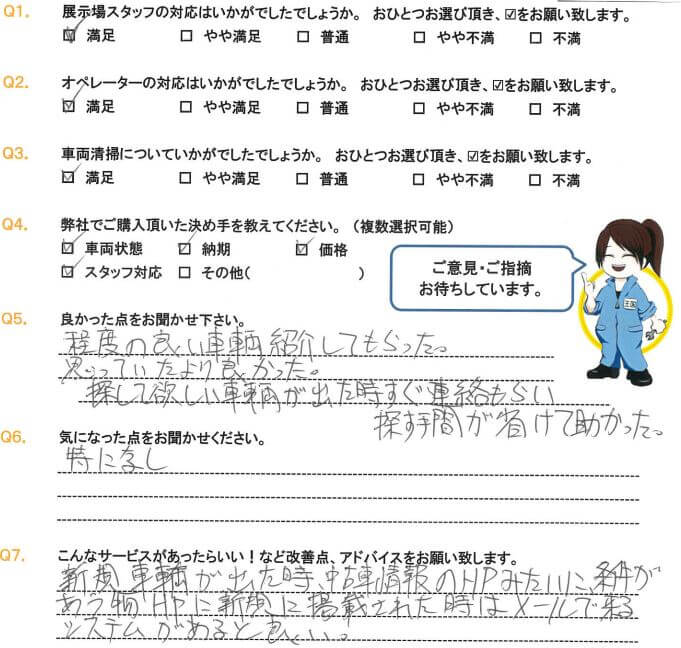 Q1. 展示場スタッフの対応はいかがでしたでしょうか。 おひとつお選び頂き、☑をお願い致します。
☑ 満足 □ やや満足 □ 普通 □ やや不満 □ 不満
Q2. オペレーターの対応はいかがでしたでしょうか。 おひとつお選び頂き、☑をお願い致します。
☑ 満足 □ やや満足 □ 普通 □ やや不満 □ 不満
Q3. 車両清掃についていかがでしたでしょうか。 おひとつお選び頂き、☑をお願い致します。
☑ 満足 □ やや満足 □ 普通 □ やや不満 □ 不満
Q4. 弊社でご購入頂いた決め手を教えてください。（複数選択可能）
☑ 車両状態 ☑ 納期 ☑ 価格
☑ スタッフ対応 □ その他( )
ご意見・ご指摘
お待ちしています。
Q5. 良かった点をお聞かせ下さい。
程度の良い車輌紹介してもらった。
思っていたより良かった。
探して欲しい車輌が出た時すぐ連絡もらい
探す手間が省けて助かった。
Q6. 気になった点をお聞かせください。
特になし
Q7. こんなサービスがあったらいい！など改善点、アドバイスをお願い致します。
新規車輌が出た時、中古車情報のHPみたいに、条件が
あう物がHPに新規に掲載された時はメールで来る
システムがあると良い。